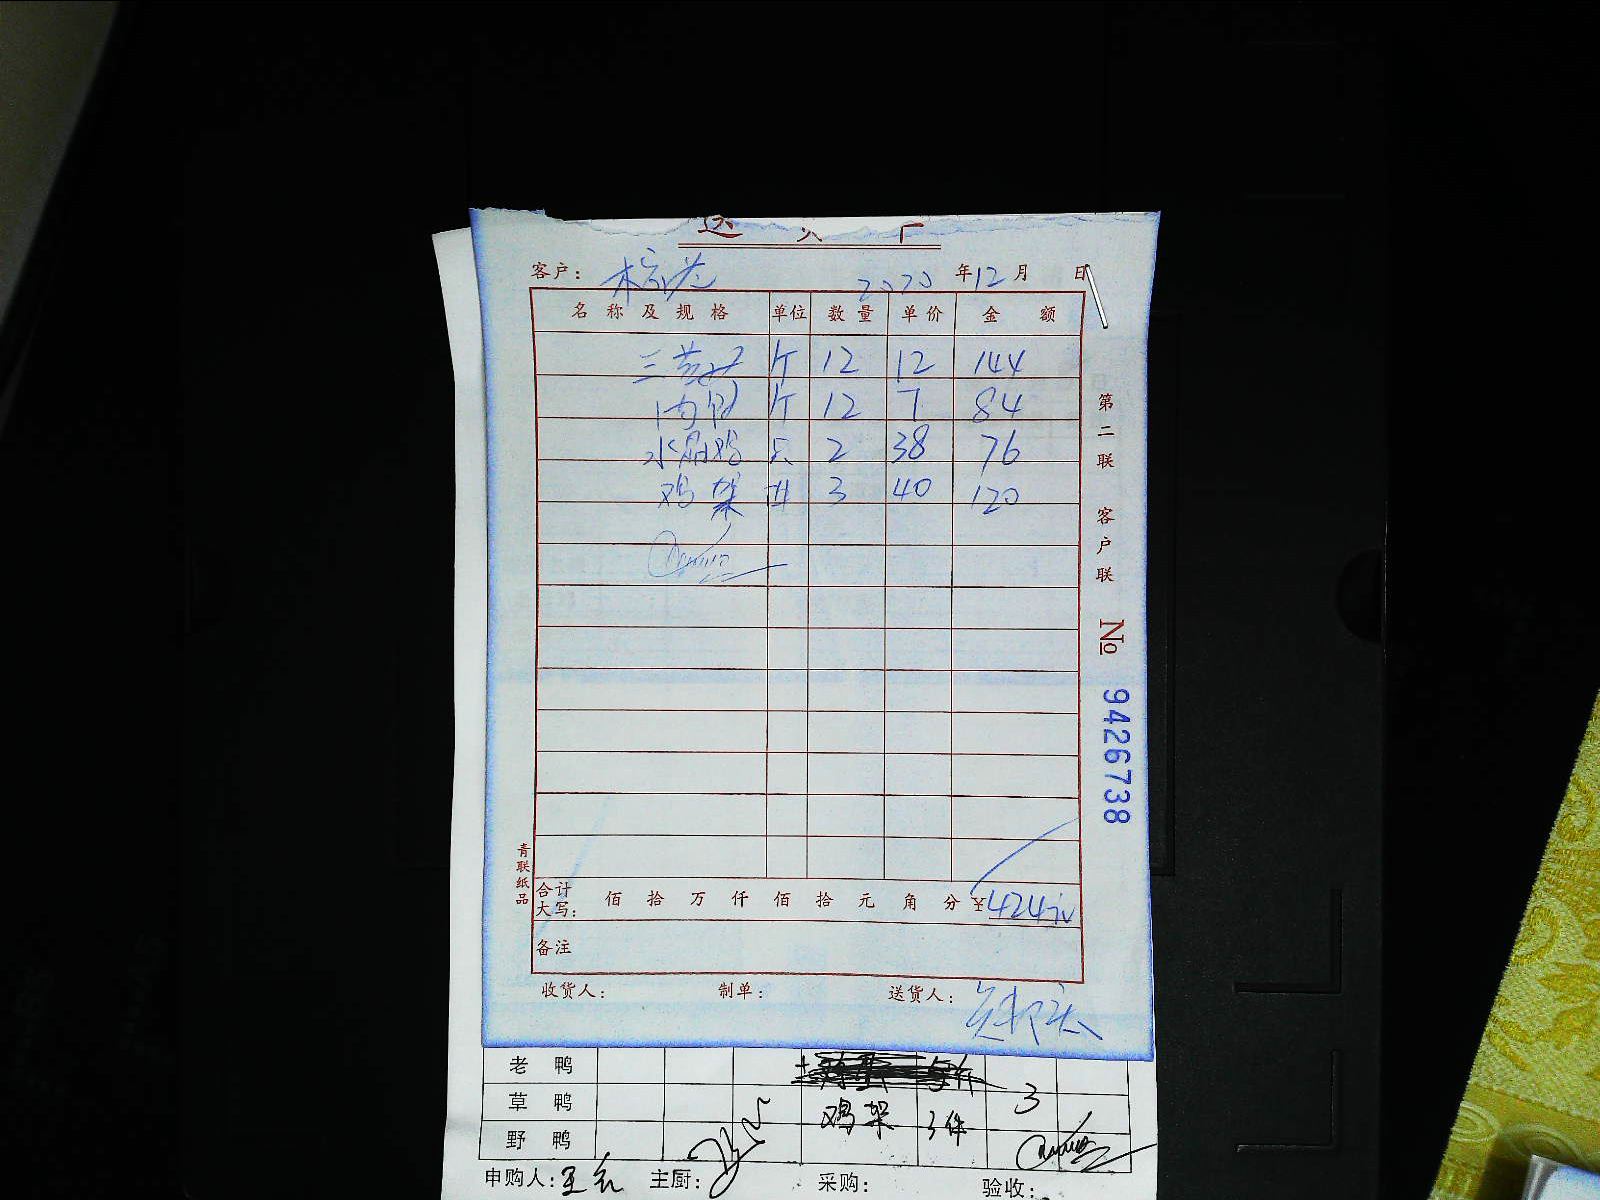 送
客户： 2020 年 12 月 日
名称及规格 单位 数量 单价 金额
三黄 斤 12 12 144
斤 12 7 84
水 鸡 只 2 38 76
鸡架 件 3 40 120
合计大写： 佰 拾 万 仟 佰 拾 元 角 分 ¥424
备注
收货人： 制单： 送货人：
第二联 客户联
№ 9426738
青联纸品
老鸭
草鸭 鸡架 3件 3
野鸭
申购人： 主厨： 采购： 验收：